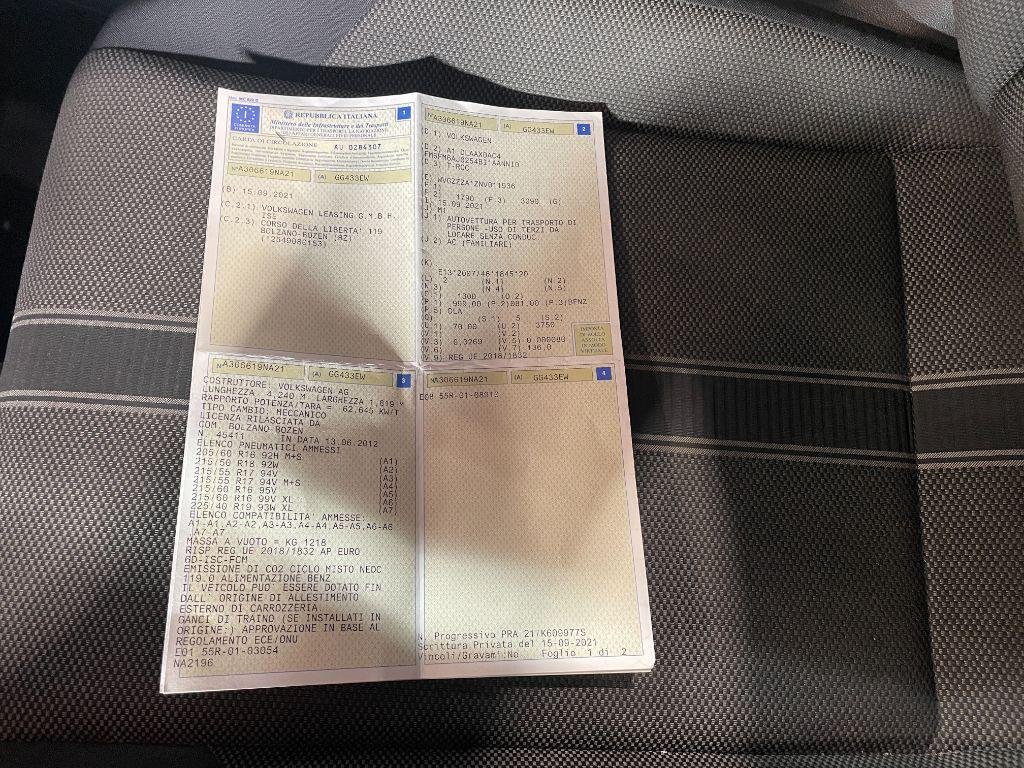 1
REPUBBLICA ITALIANA
Ministero delle Infrastrutture e dei Trasporti
CARTA DI CIRCOLAZIONE AU 0284307
N°A306619NA21 (A) GG433EW
(B) 15.09.2021
(C.2.1) VOLKSWAGEN LEASING G.M.B.H.
ISE
(C.2.3) CORSO DELLA LIBERTA' 119
BOLZANO-BOZEN (BZ)
(12549080153)
N°A306619NA21 (A) GG433EW 2
(D.1) VOLKSWAGEN
(D.2) A1 DLAAX0AC4
(D.3) T-ROC
(E) WVGZZZA1ZNV011936
(F.1)
(F.2) 1790 (F.3) 3090 (G)
(I) 15.09.2021
(J) M1
(J.1) AUTOVETTURA PER TRASPORTO DI
PERSONE -USO DI TERZI DA
LOCARE SENZA CONDUC.
(J.2) AC (FAMILIARE)
(K)
E13*2007/46*1845*20
(L) 2 (N.1) (N.2)
(N.3) (N.4) (N.5)
(O.1) 1300 (O.2)
(P.1) 999,00 (P.2)081,00 (P.3)BENZ
(P.5) DLA
(Q) (S.1) 5 (S.2)
(U.1) 70.00 (U.2) 3750
(V.1) (V.2)
(V.3) 0,0269 (V.5) 0,000080
(V.6) (V.7) 136,0
(V.9) REG UE 2018/1832
IMPOSTA
DI BOLLO
ASSOLTA
IN MODO
VIRTUALE
N°A306619NA21 (A) GG433EW 3
COSTRUTTORE: VOLKSWAGEN AG
LUNGHEZZA 4,240 M LARGHEZZA 1,819 M
RAPPORTO POTENZA/TARA = 62,645 KW/T
TIPO CAMBIO: MECCANICO
LICENZA RILASCIATA DA
COM. BOLZANO-BOZEN
N. 45411 IN DATA 13.06.2012
ELENCO PNEUMATICI AMMESSI
205/60 R16 92H M+S (A1)
215/50 R18 92W (A2)
215/55 R17 94V (A3)
215/55 R17 94V M+S (A4)
215/60 R16 95V (A5)
215/60 R16 99V XL (A6)
225/40 R19 93W XL (A7)
ELENCO COMPATIBILITA' AMMESSE:
A1-A1,A2-A2,A3-A3,A4-A4,A5-A5,A6-A6
,A7-A7
MASSA A VUOTO = KG 1218
RISP REG UE 2018/1832 AP EURO
6D-ISC-FCM
EMISSIONE DI CO2 CICLO MISTO NEDC
119.0 ALIMENTAZIONE BENZ
IL VEICOLO PUO' ESSERE DOTATO FIN
DALL' ORIGINE DI ALLESTIMENTO
ESTERNO DI CARROZZERIA
GANCI DI TRAINO (SE INSTALLATI IN
ORIGINE:) APPROVAZIONE IN BASE AL
REGOLAMENTO ECE/ONU
E01 55R-01-03054
NA2196
N°A306619NA21 (A) GG433EW 4
55R-01-08012
N. Progressivo PRA 21/K609977S
Scrittura Privata del 15-09-2021
Vincoli/Gravami:No Foglio 1 di 2